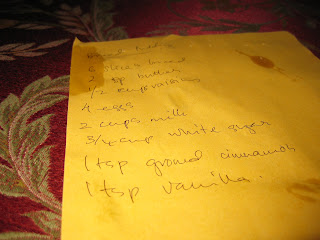 6 slices bread
2 tsp butter
1/2 cup raisins
4 eggs
2 cups milk
3/4 cup white sugar
1 tsp ground cinnamon
1 tsp vanilla.